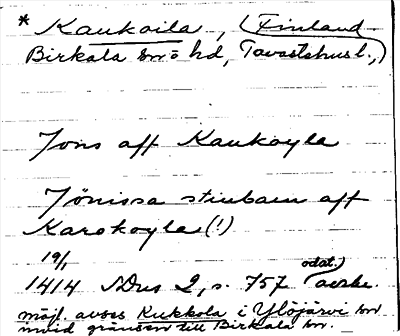 * Kaukoila, (Finland
Birkala sn o hd, Tavastehusl.,)
Jons aff Kaukoyla
Jönissa stubam aff
Karokoyla (!)
19/1
1414 SDns 2, s. 757 odat.) avskr.
möjl. avses Kukkola i Ylöjärvi sn
invid gränsen till Birkala sn.